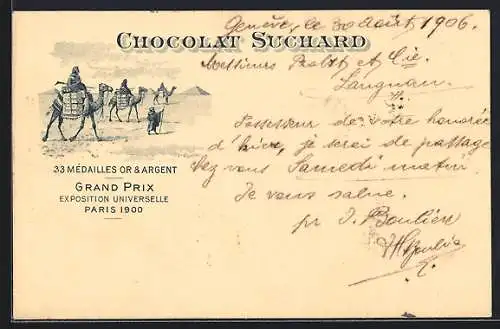 Genève, le 30 août 1906.
CHOCOLAT SUCHARD
Messieurs Probst et Cie.
Langnau.
Possesseur de votre honorée
d'hier, je serai de passage
chez vous Samedi matin.
Je vous salue.
pr J. Boulier
33 MÉDAILLES OR & ARGENT
GRAND PRIX
EXPOSITION UNIVERSELLE
PARIS 1900